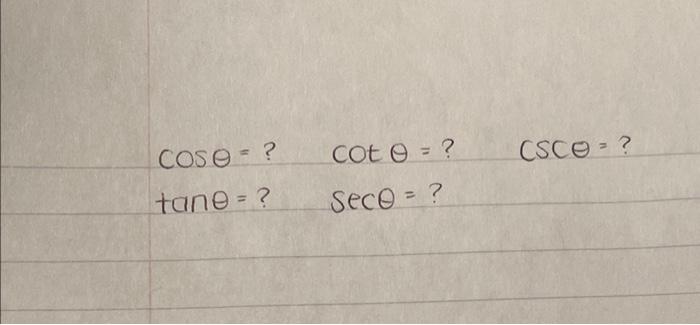 cosθ = ? cot θ = ? cscθ = ?
tanθ = ? secθ = ?